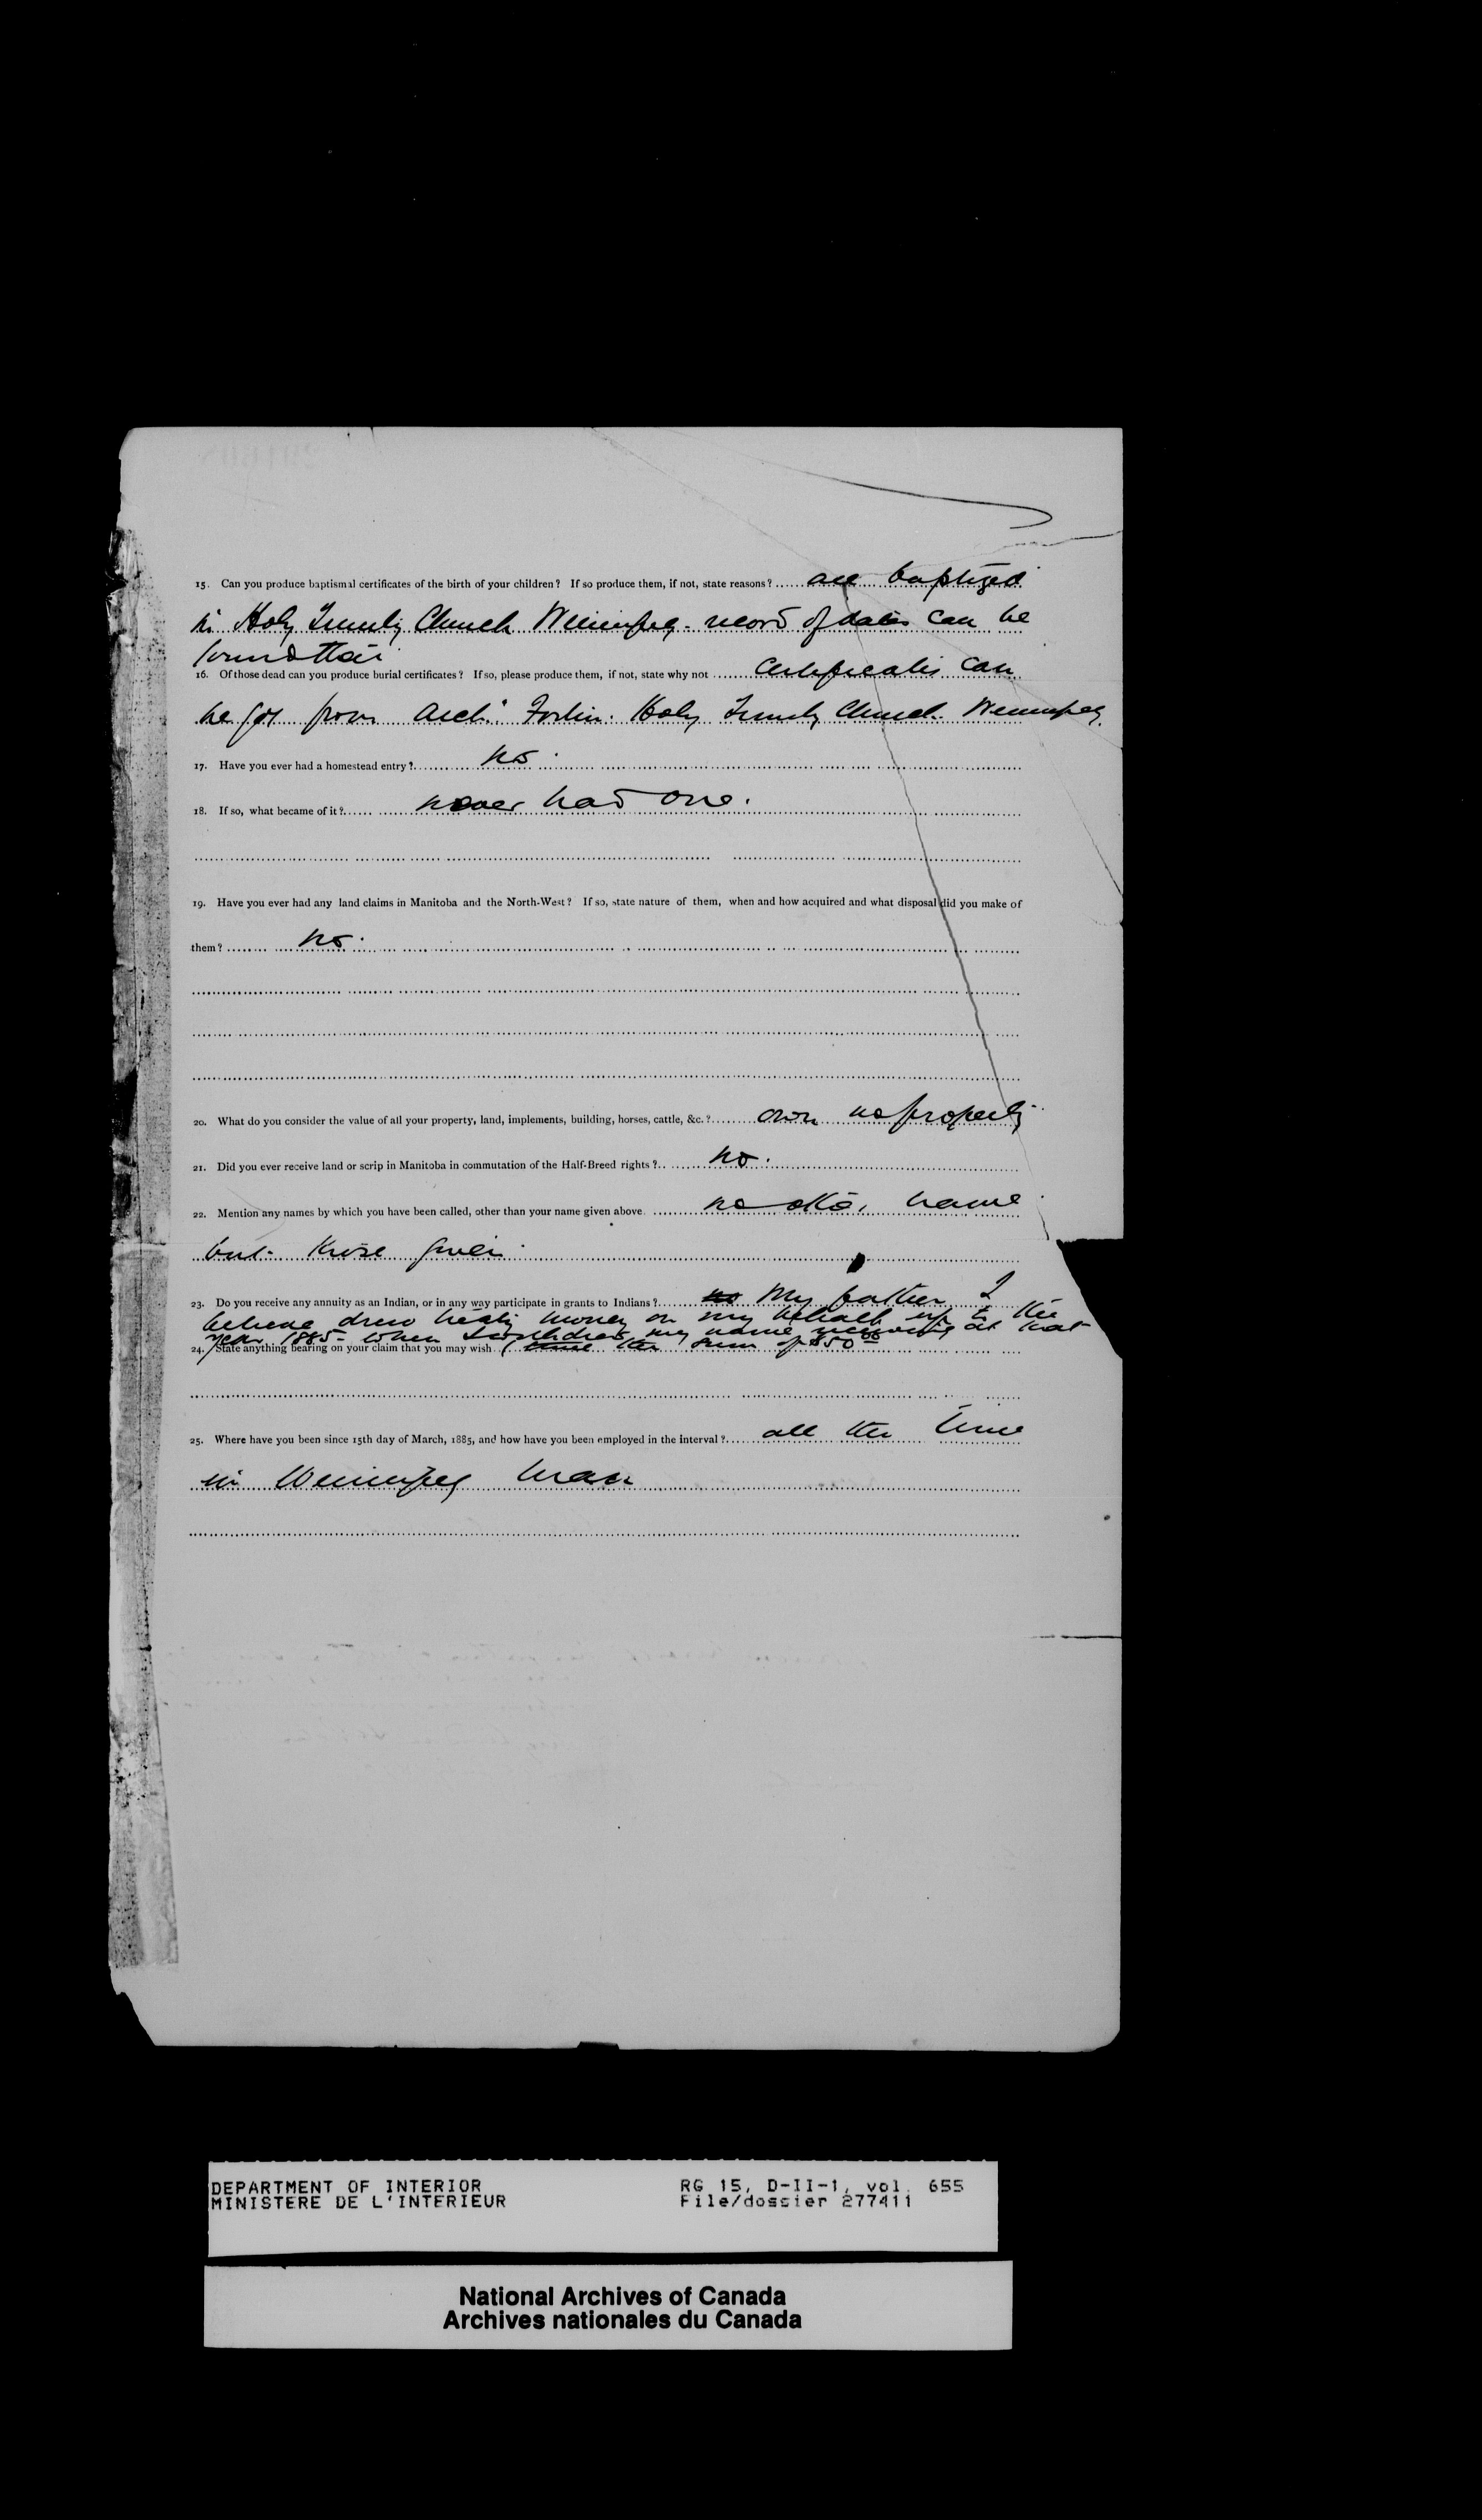 15. Can you produce baptismal certificates of the birth of your children? If so produce them, if not, state reasons? all baptized
in Holy Trinity Church Winnipeg - record of dates can be
found there
16. Of those dead can you produce burial certificates? If so, please produce them, if not, state why not certificates can
be got from Arch. Fortin. Holy Trinity Church. Winnipeg.
17. Have you ever had a homestead entry? no.
18. If so, what became of it? never had one.
19. Have you ever had any land claims in Manitoba and the North-West? If so, state nature of them, when and how acquired and what disposal did you make of
them? no.
20. What do you consider the value of all your property, land, implements, building, horses, cattle, &c.? own no property
21. Did you ever receive land or scrip in Manitoba in commutation of the Half-Breed rights? no.
22. Mention any names by which you have been called, other than your name given above no other name
but those given
23. Do you receive any annuity as an Indian, or in any way participate in grants to Indians? no My father I
believe drew treaty money on my behalf up to the
year 1885 - when I withdrew my name receiving at that
24. State anything bearing on your claim that you may wish time the sum of $50
25. Where have you been since 15th day of March, 1885, and how have you been employed in the interval? all the time
in Winnipeg Man
DEPARTMENT OF INTERIOR RG 15, D-II-1, vol. 655
MINISTERE DE L'INTERIEUR File/dossier 277411
National Archives of Canada
Archives nationales du Canada